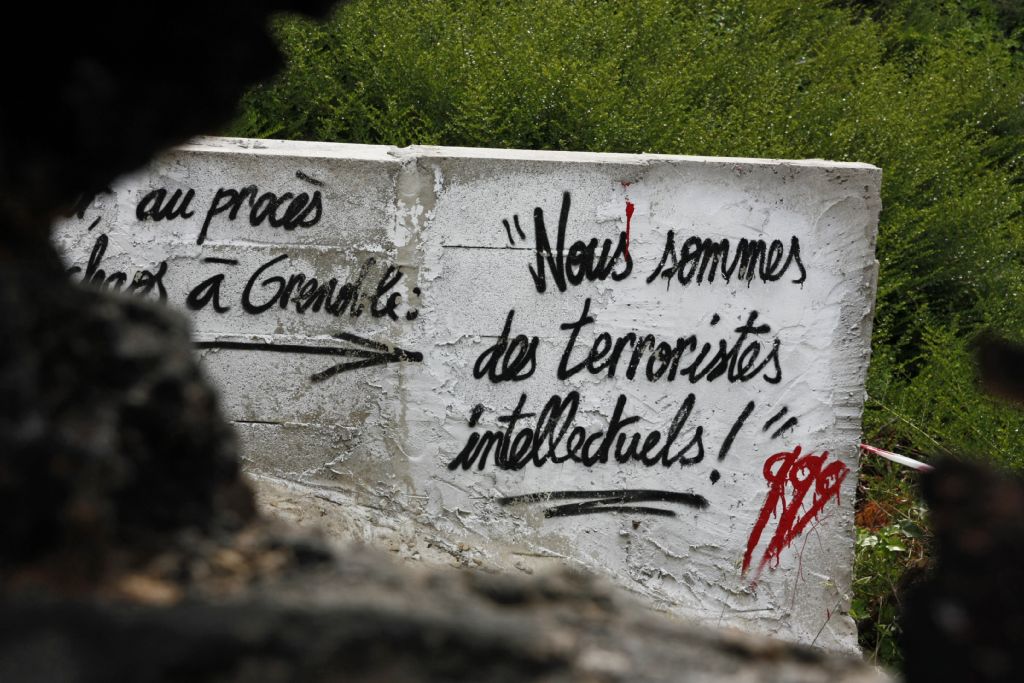 au procès
chaos à Grenoble:
"Nous sommes
des terroristes
intellectuels!"
999